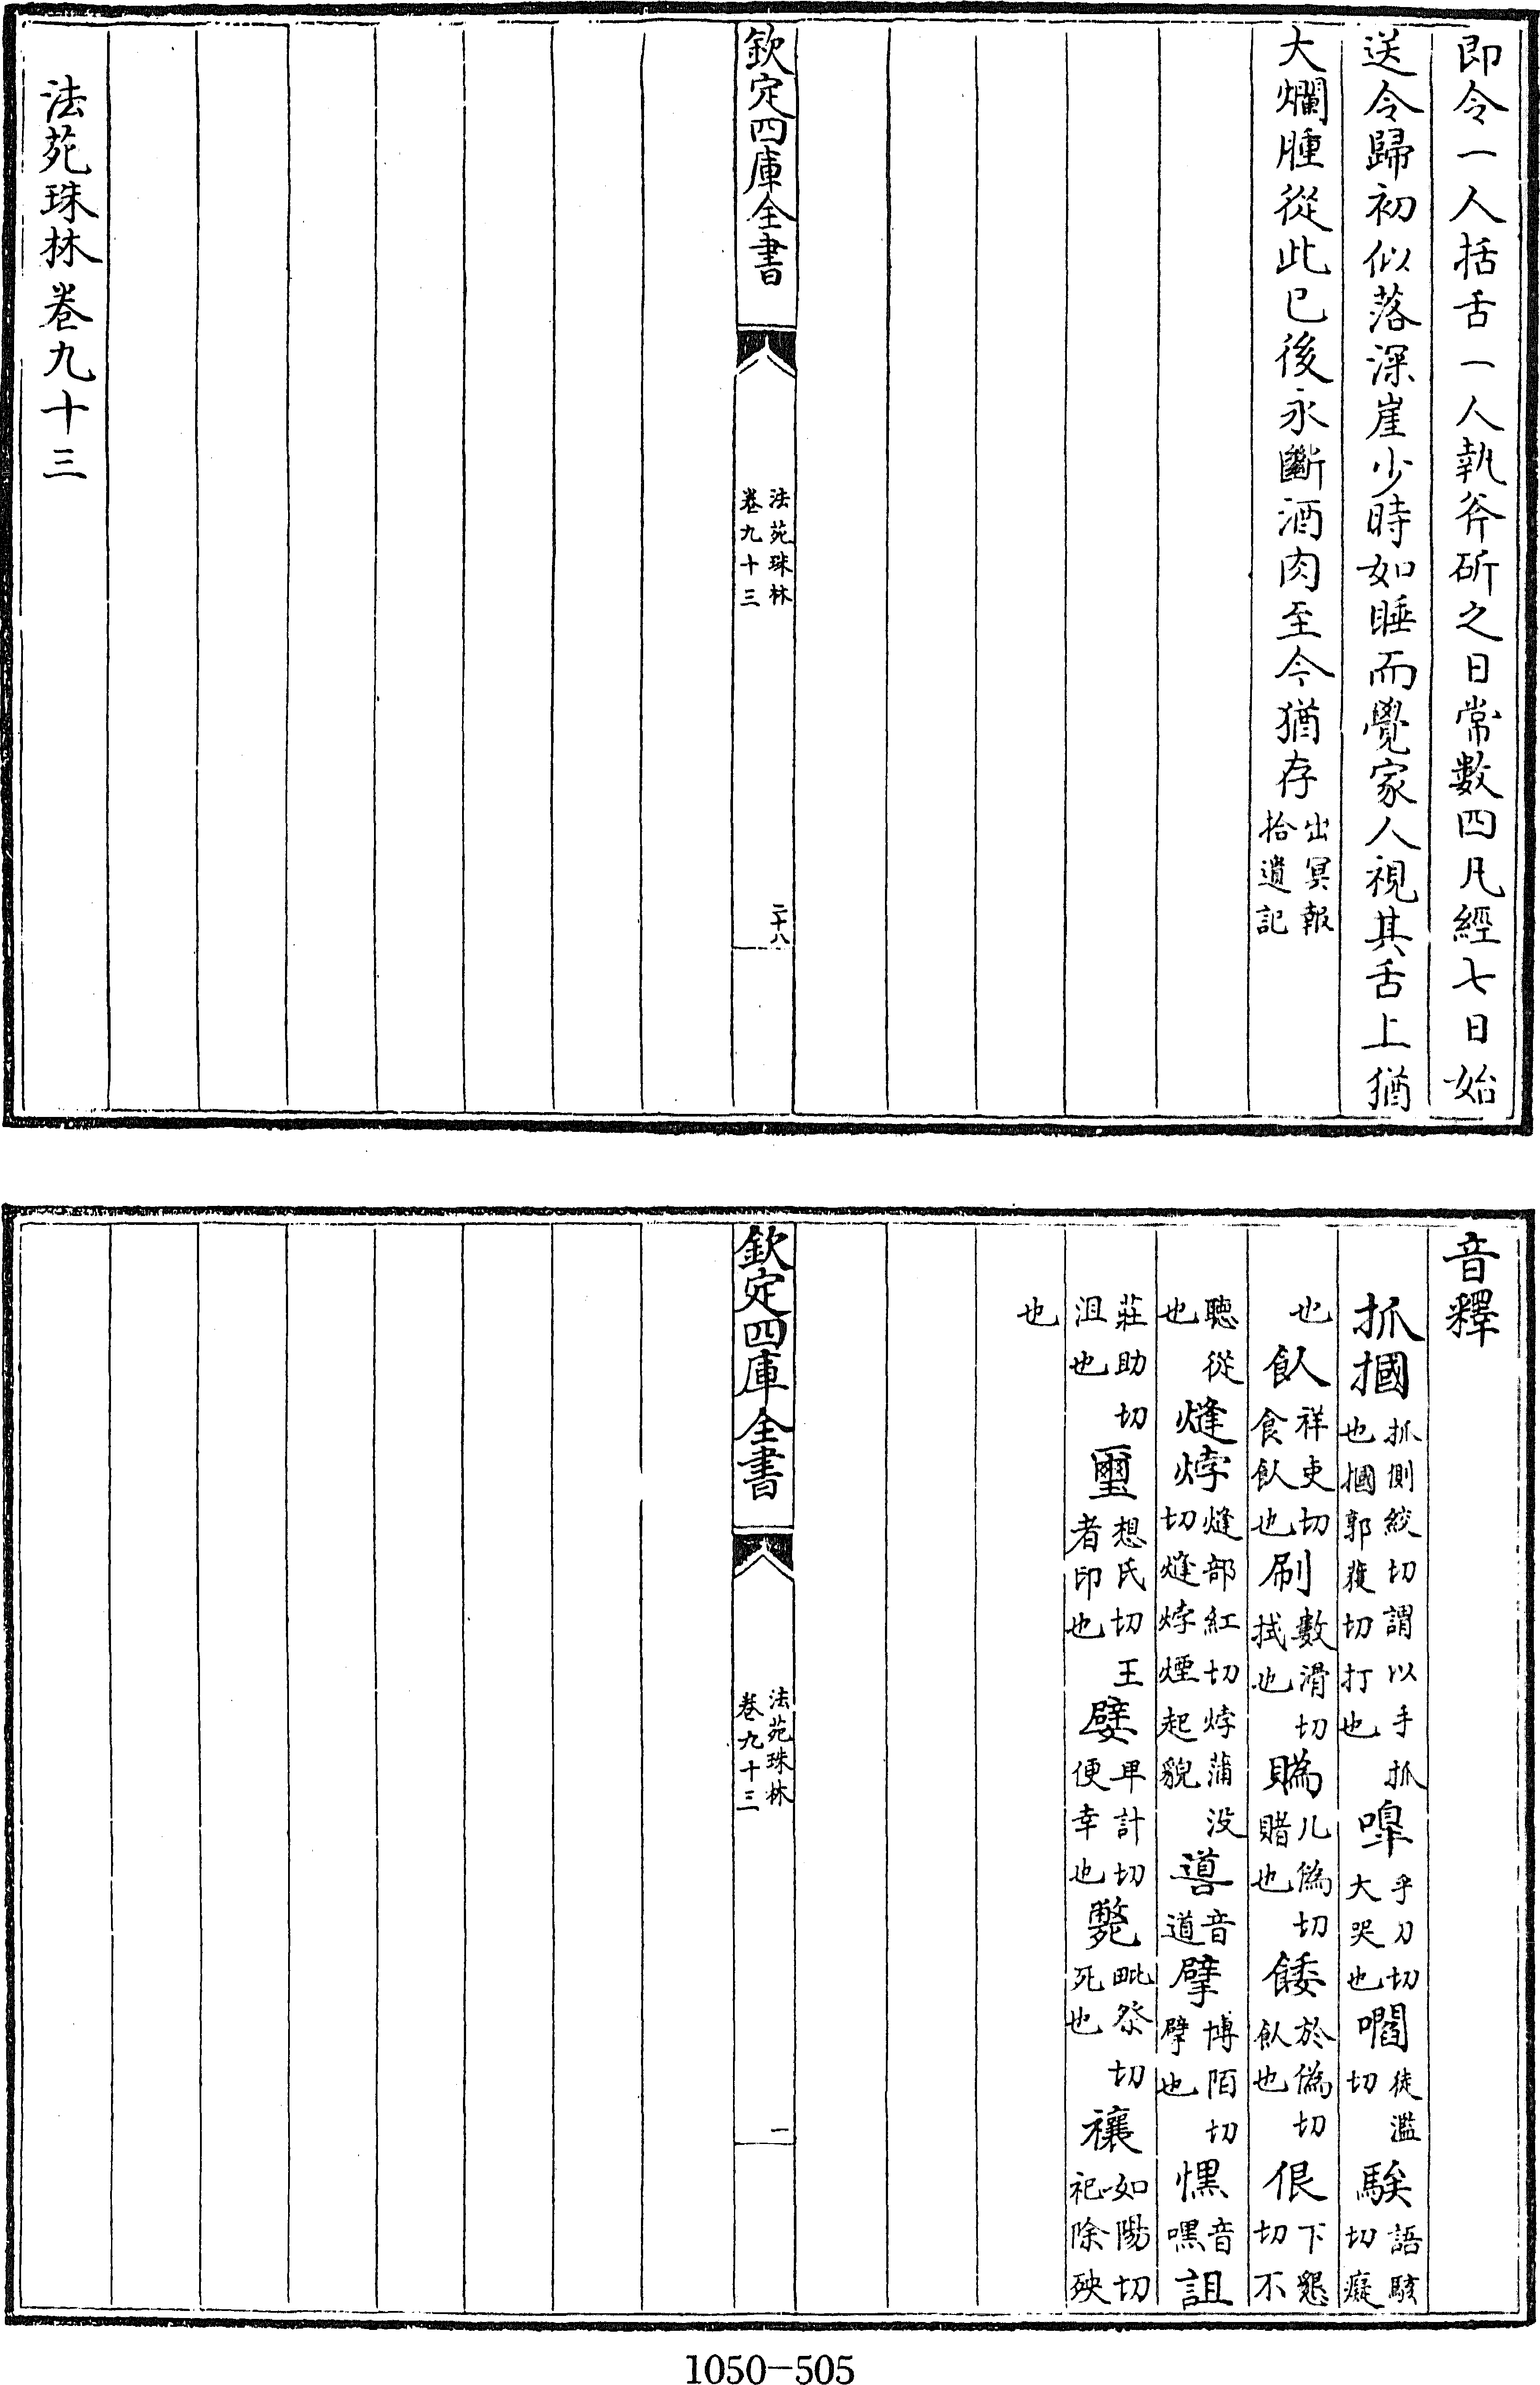 即令一人括舌一人執斧斫之日常數四凡經七日始
送令歸初似落深崖少時如睡而覺家人視其舌上猶
大爛腫從此已後永斷酒肉至今猶存出冥報
拾遺記
欽定四庫全書
法苑珠林
卷九十三
二十八
法苑珠林卷九十三
音釋
抓摑抓側絞切謂以手抓
也摑郭獲切打也
嘷乎刀切
大哭也
嚪徒濫
切
騃語駭
切癡
也
飤祥吏切
食飤也
刷數滑切
拭也
賭几偽切
賭也
餧於偽切
飤也
佷下懇
切不
聽從
也
熢㶿熢部紅切㶿蒲没
切熢㶿煙起貌
噵音
道
擘博陌切
擘也
㷇音
嘿
詛
莊助切
沮也
璽想氏切王
者印也
嬖卑計切
便幸也
斃毗祭切
死也
禳如陽切
祀除殃
也
欽定四庫全書
法苑珠林
卷九十三
一
1050-505